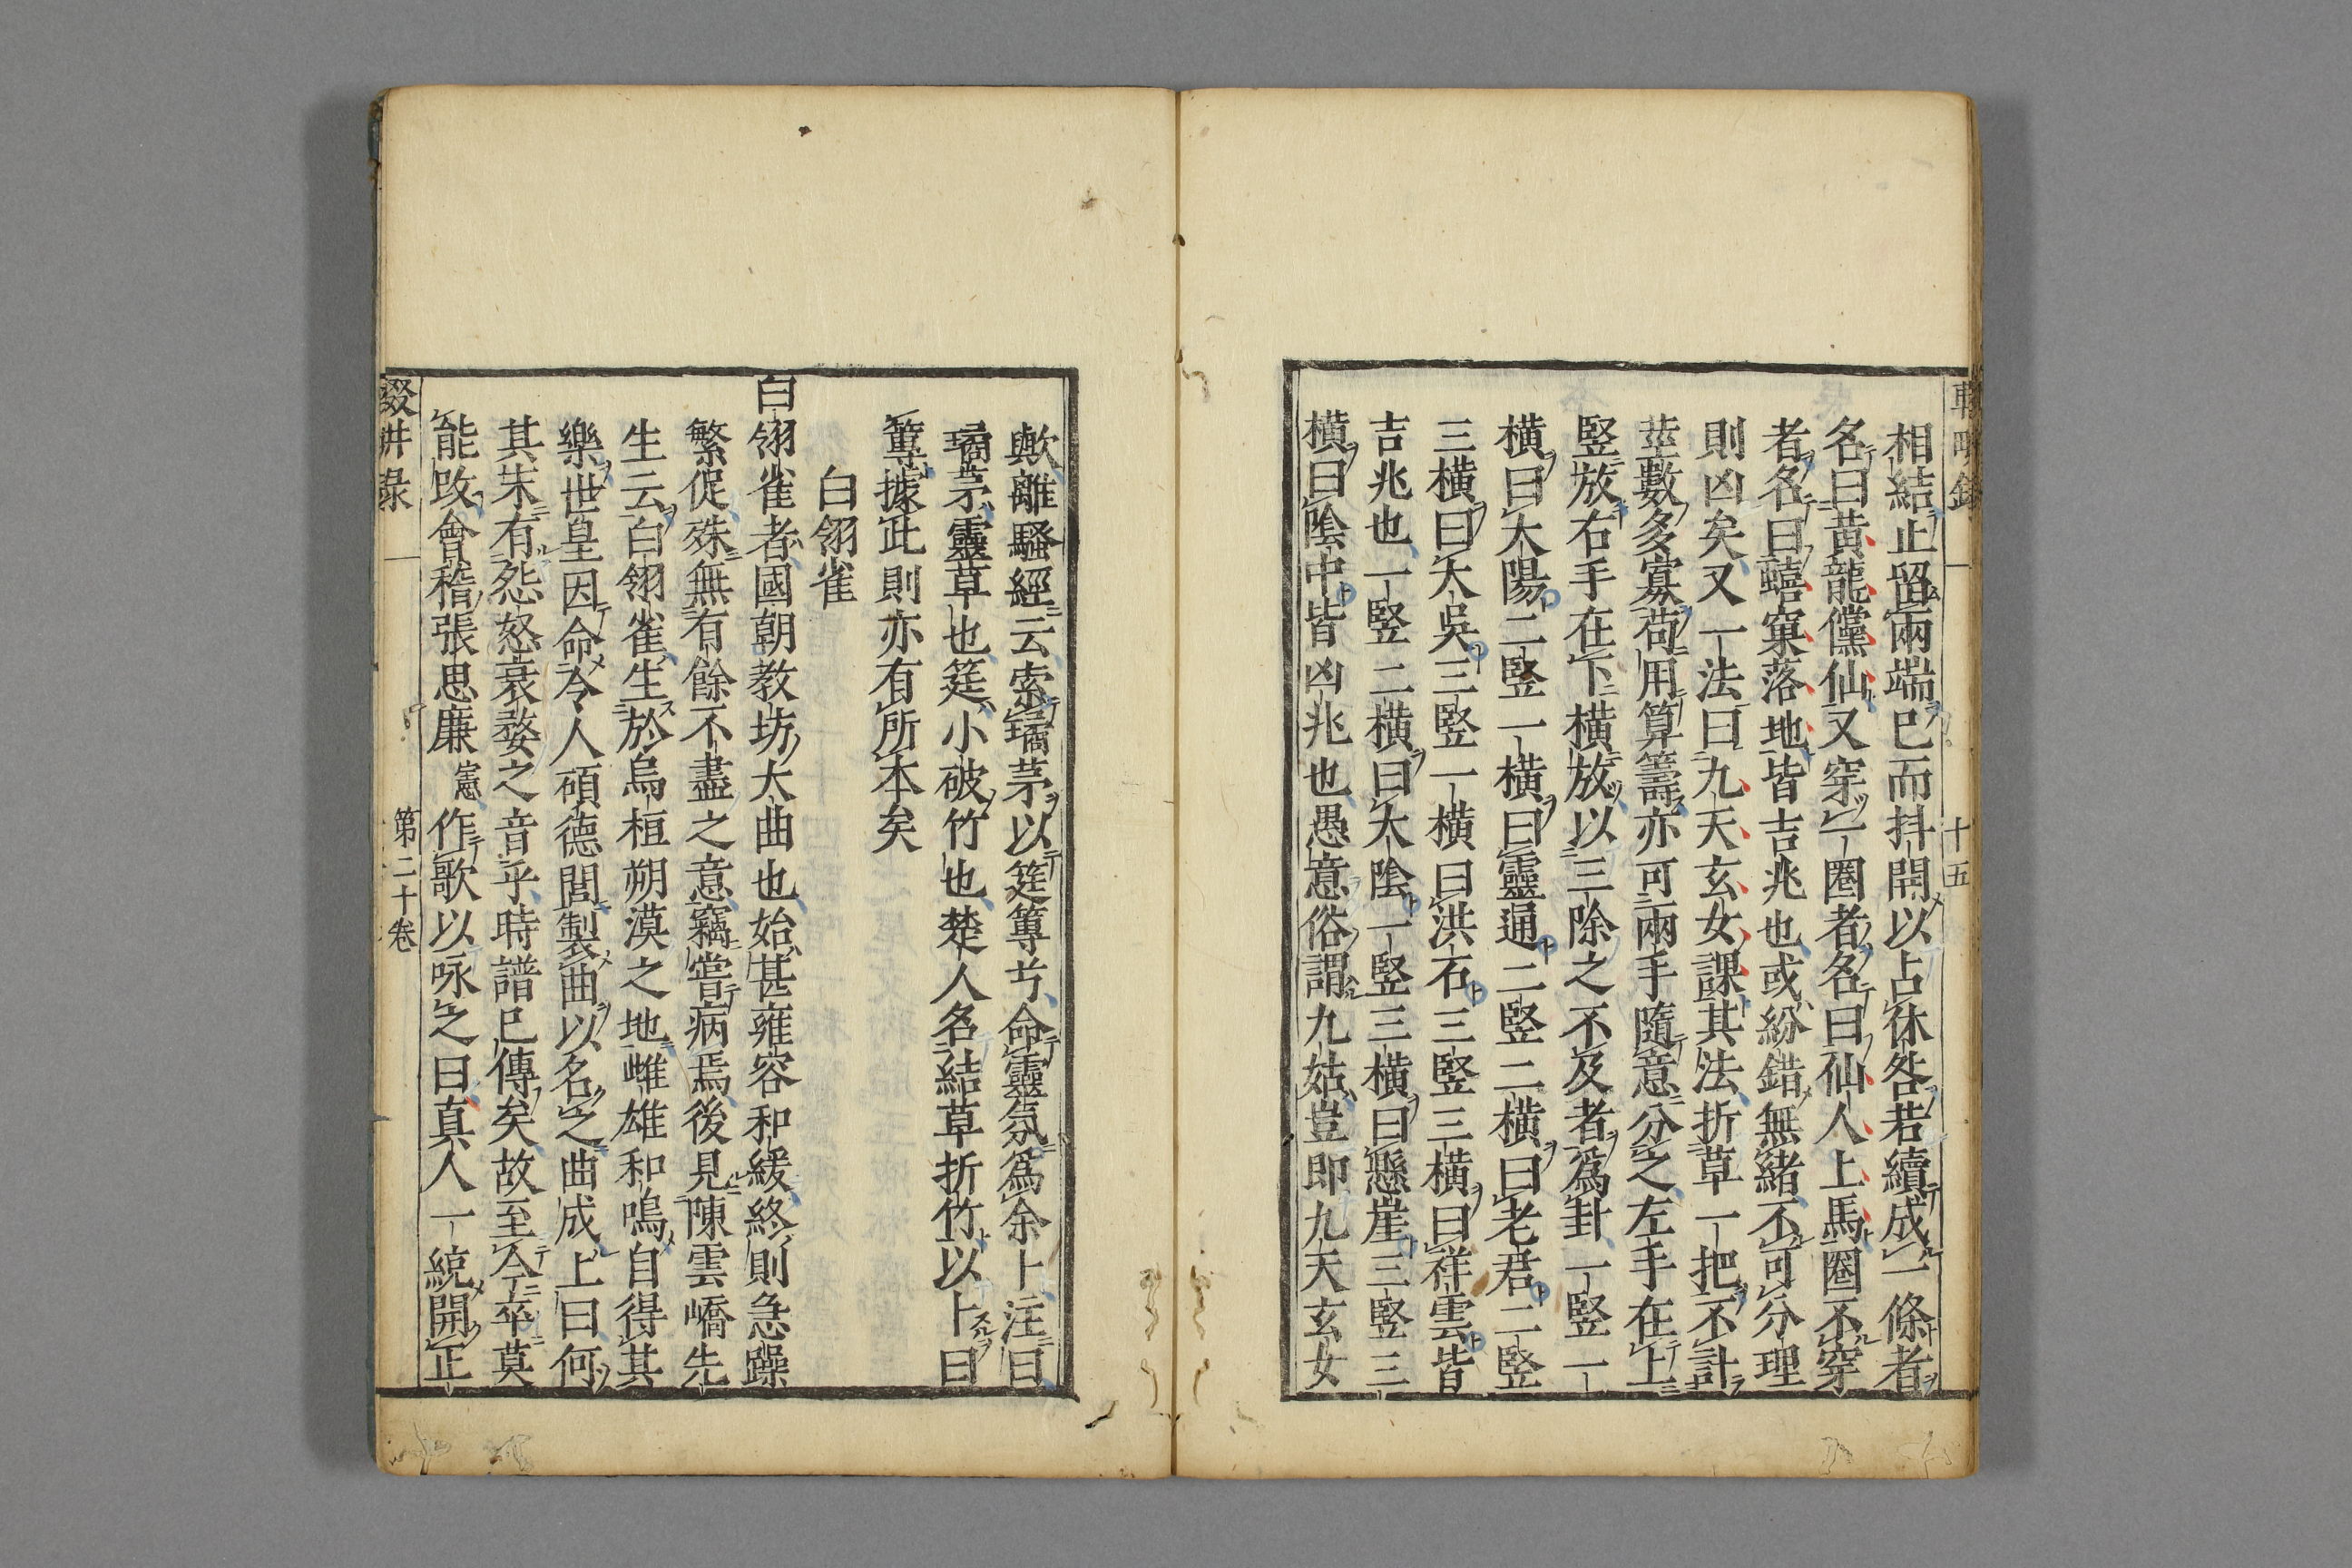 輟畊録
十五
相結止留兩端已而抖開以占休咎若續成一條者
名曰黄龍儻仙又穿一圈者名曰仙人上馬圈不穿
者名曰蟢窠落地皆吉兆也或紛錯無緒不可分理
則凶矣又一法曰九天玄女課其法折草一把不計
莖數多寡苟用算籌亦可兩手隨意分之左手在上
竪放右手在下橫放以三除之不及者爲卦一竪一
橫曰太陽二竪一橫曰靈通二竪二橫曰老君二竪
三橫曰太吳三竪一橫曰洪石三竪三橫曰祥雲皆
吉兆也一竪二橫曰太陰一竪三橫曰懸崖三竪二
橫曰陰中皆凶兆也愚意俗謂九姑豈即九天玄女
歟離騷經云索藑茅以筳篿兮命靈氛爲余卜注曰
藑茅靈草也筳小破竹也楚人名結草折竹以卜曰
篿據此則亦有所本矣
白翎雀
白翎雀者國朝教坊大曲也始甚雍容和緩終則急躁
繁促殊無有餘不盡之意竊嘗病焉後見陳雲嶠先
生云白翎雀生於烏桓朔漠之地雌雄和鳴自得其
樂世皇因命伶人碩德閭製曲以名之曲成上曰何
其末有怨怒哀嫠之音乎時譜已傳矣故至今卒莫
能改會稽張思廉憲作歌以咏之曰真人一統開正
輟畊录
第二十卷